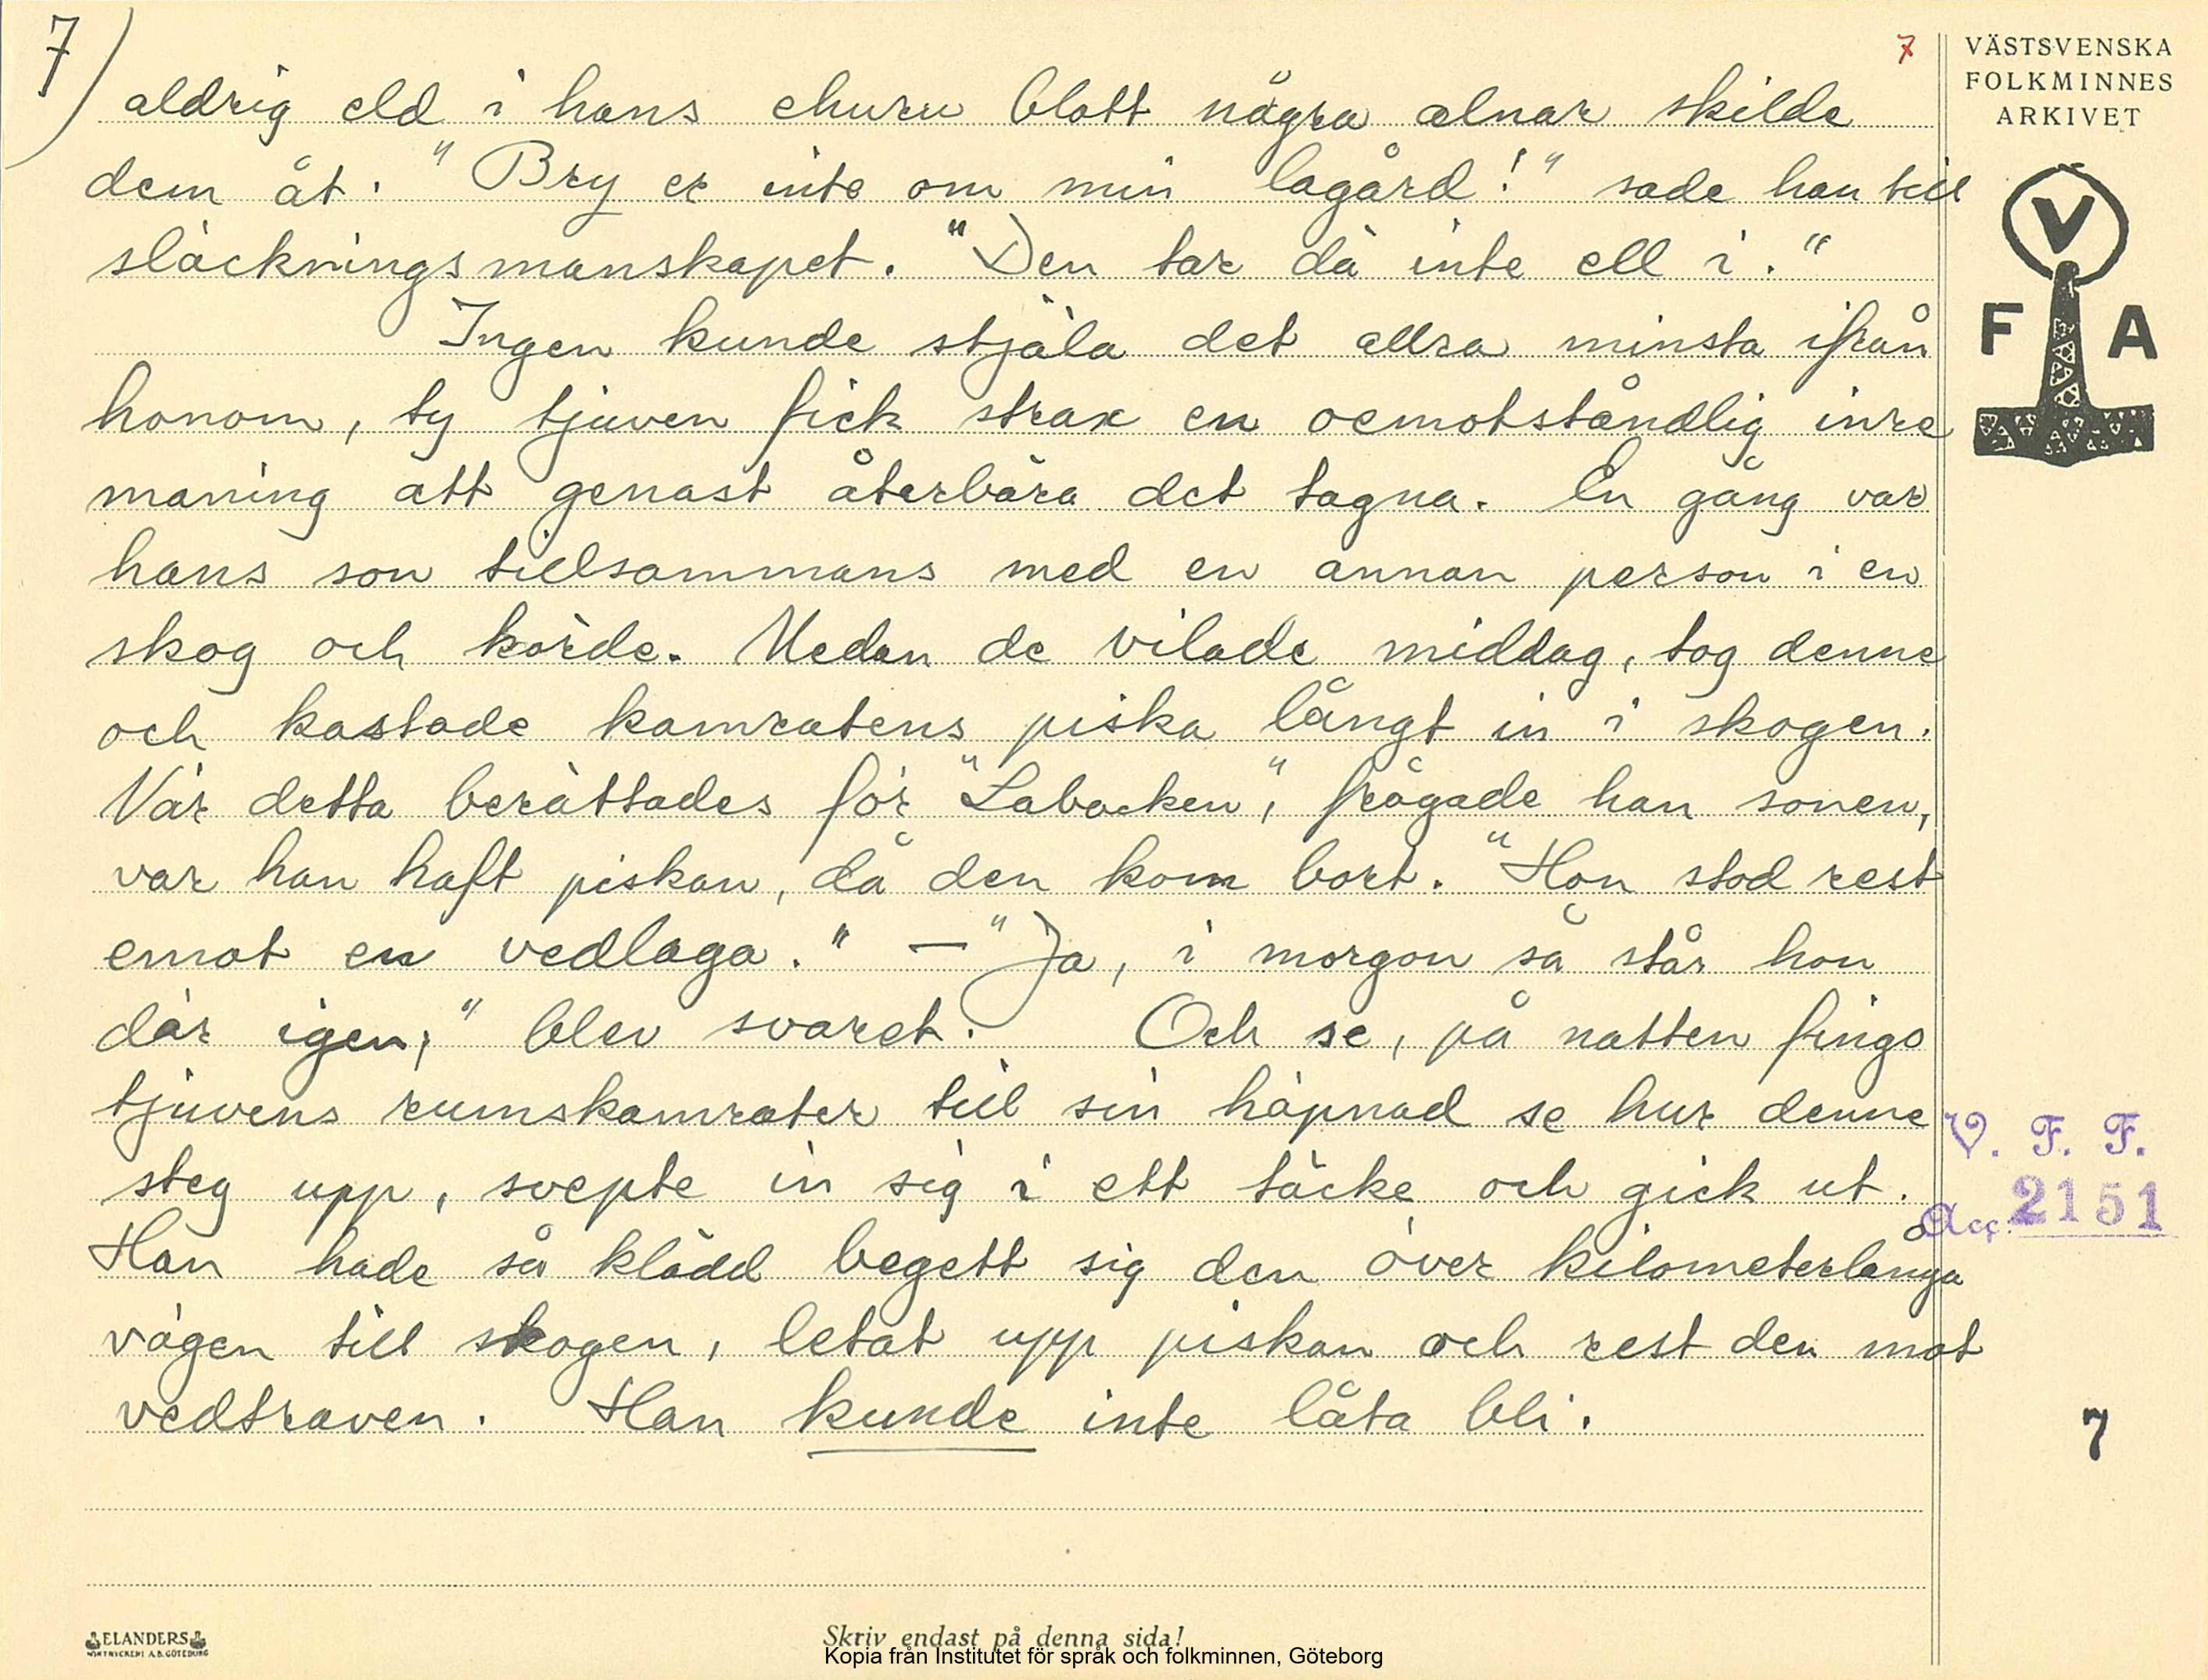 7)
7
VÄSTSVENSKA
FOLKMINNES
ARKIVET
aldrig eld i hans ehuru blott några alnar skilde
dem åt. "Bry er inte om min lagård!" sade han till
släckningsmanskapet. "Den tar då inte ell i."
V
F A
Ingen kunde stjäla det allra minsta ifrån
honom, ty tjuven fick strax en oemotståndlig inre
maning att genast återbära det tagna. En gång var
hans son tillsammans med en annan person i en
skog och körde. Medan de vilade middag, tog denne
och kastade kamratens piska långt in i skogen.
När detta berättades för "Labacken", frågade han sonen,
var han haft piskan, då den kom bort. "Hon stod rest
emot en vedlaga." — "Ja, i morgon så står hon
där igen," blev svaret. Och se, på natten fingo
tjuvens rumskamrater till sin häpnad se hur denne
steg upp, svepte in sig i ett täcke och gick ut.
Han hade så klädd begett sig den över kilometerlånga
vägen till skogen, letat upp piskan och rest den mot
vedtraven. Han kunde inte låta bli.
V. F. F.
Acc. 2151
7
ELANDERS
Skriv endast på denna sida!
Kopia från Institutet för språk och folkminnen, Göteborg